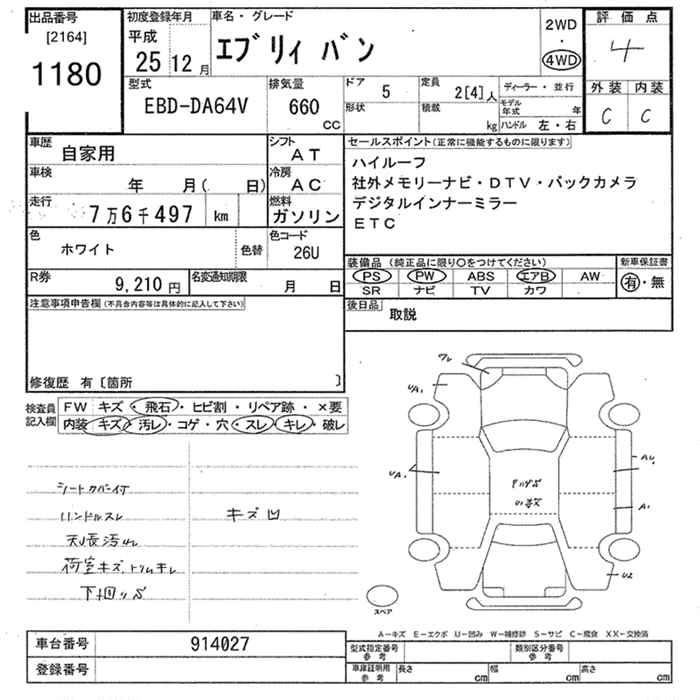 出品番号
[2164]
1180
初度登録年月
平成
25 12 月
車名・グレード
エブリィ バン
2WD
・
4WD
評価点
4
外装 内装
C C
型式
EBD-DA64V
排気量
660
CC
ドア 5
形状
定員 2[4]人
積載 kg
ディーラー・並行
モデル年式 年
ハンドル 左・右
車歴 自家用
車検 年 月( 日)
走行 7万6千497 km
シフト
AT
冷房
AC
燃料
ガソリン
色 ホワイト
色替
色コード
26U
R券 9,210円
名変通知期限 月 日
セールスポイント(正常に機能するものに限ります)
ハイルーフ
社外メモリーナビ・DTV・バックカメラ
デジタルインナーミラー
ETC
装備品(純正品に限り○をつけてください)
PS PW ABS エアB AW
SR ナビ TV カワ
新車保証書
有・無
後日品 取説
注意事項申告欄(不具合内容等は具体的に記入して下さい)
修復歴 有〔箇所 〕
検査員記入欄
FW キズ・飛石・ヒビ割・リペア跡・×要
内装 キズ・汚レ・コゲ・穴・スレ・キレ・破レ
シートカバー付
ハンドルスレ
キズ凹
天張汚レ
荷室キズ トリムキレ
下回りS
ワレ
UA1
UA1
AU1
A1
U2
小数
スペア
A-キズ E-エクボ U-凹み W-補修跡 S-サビ C-腐食 XX-交換済
車台番号 914027
登録番号
型式指定番号
参考
類別区分番号
参考
車庫証明用
参考
長さ cm 幅 cm 高さ cm